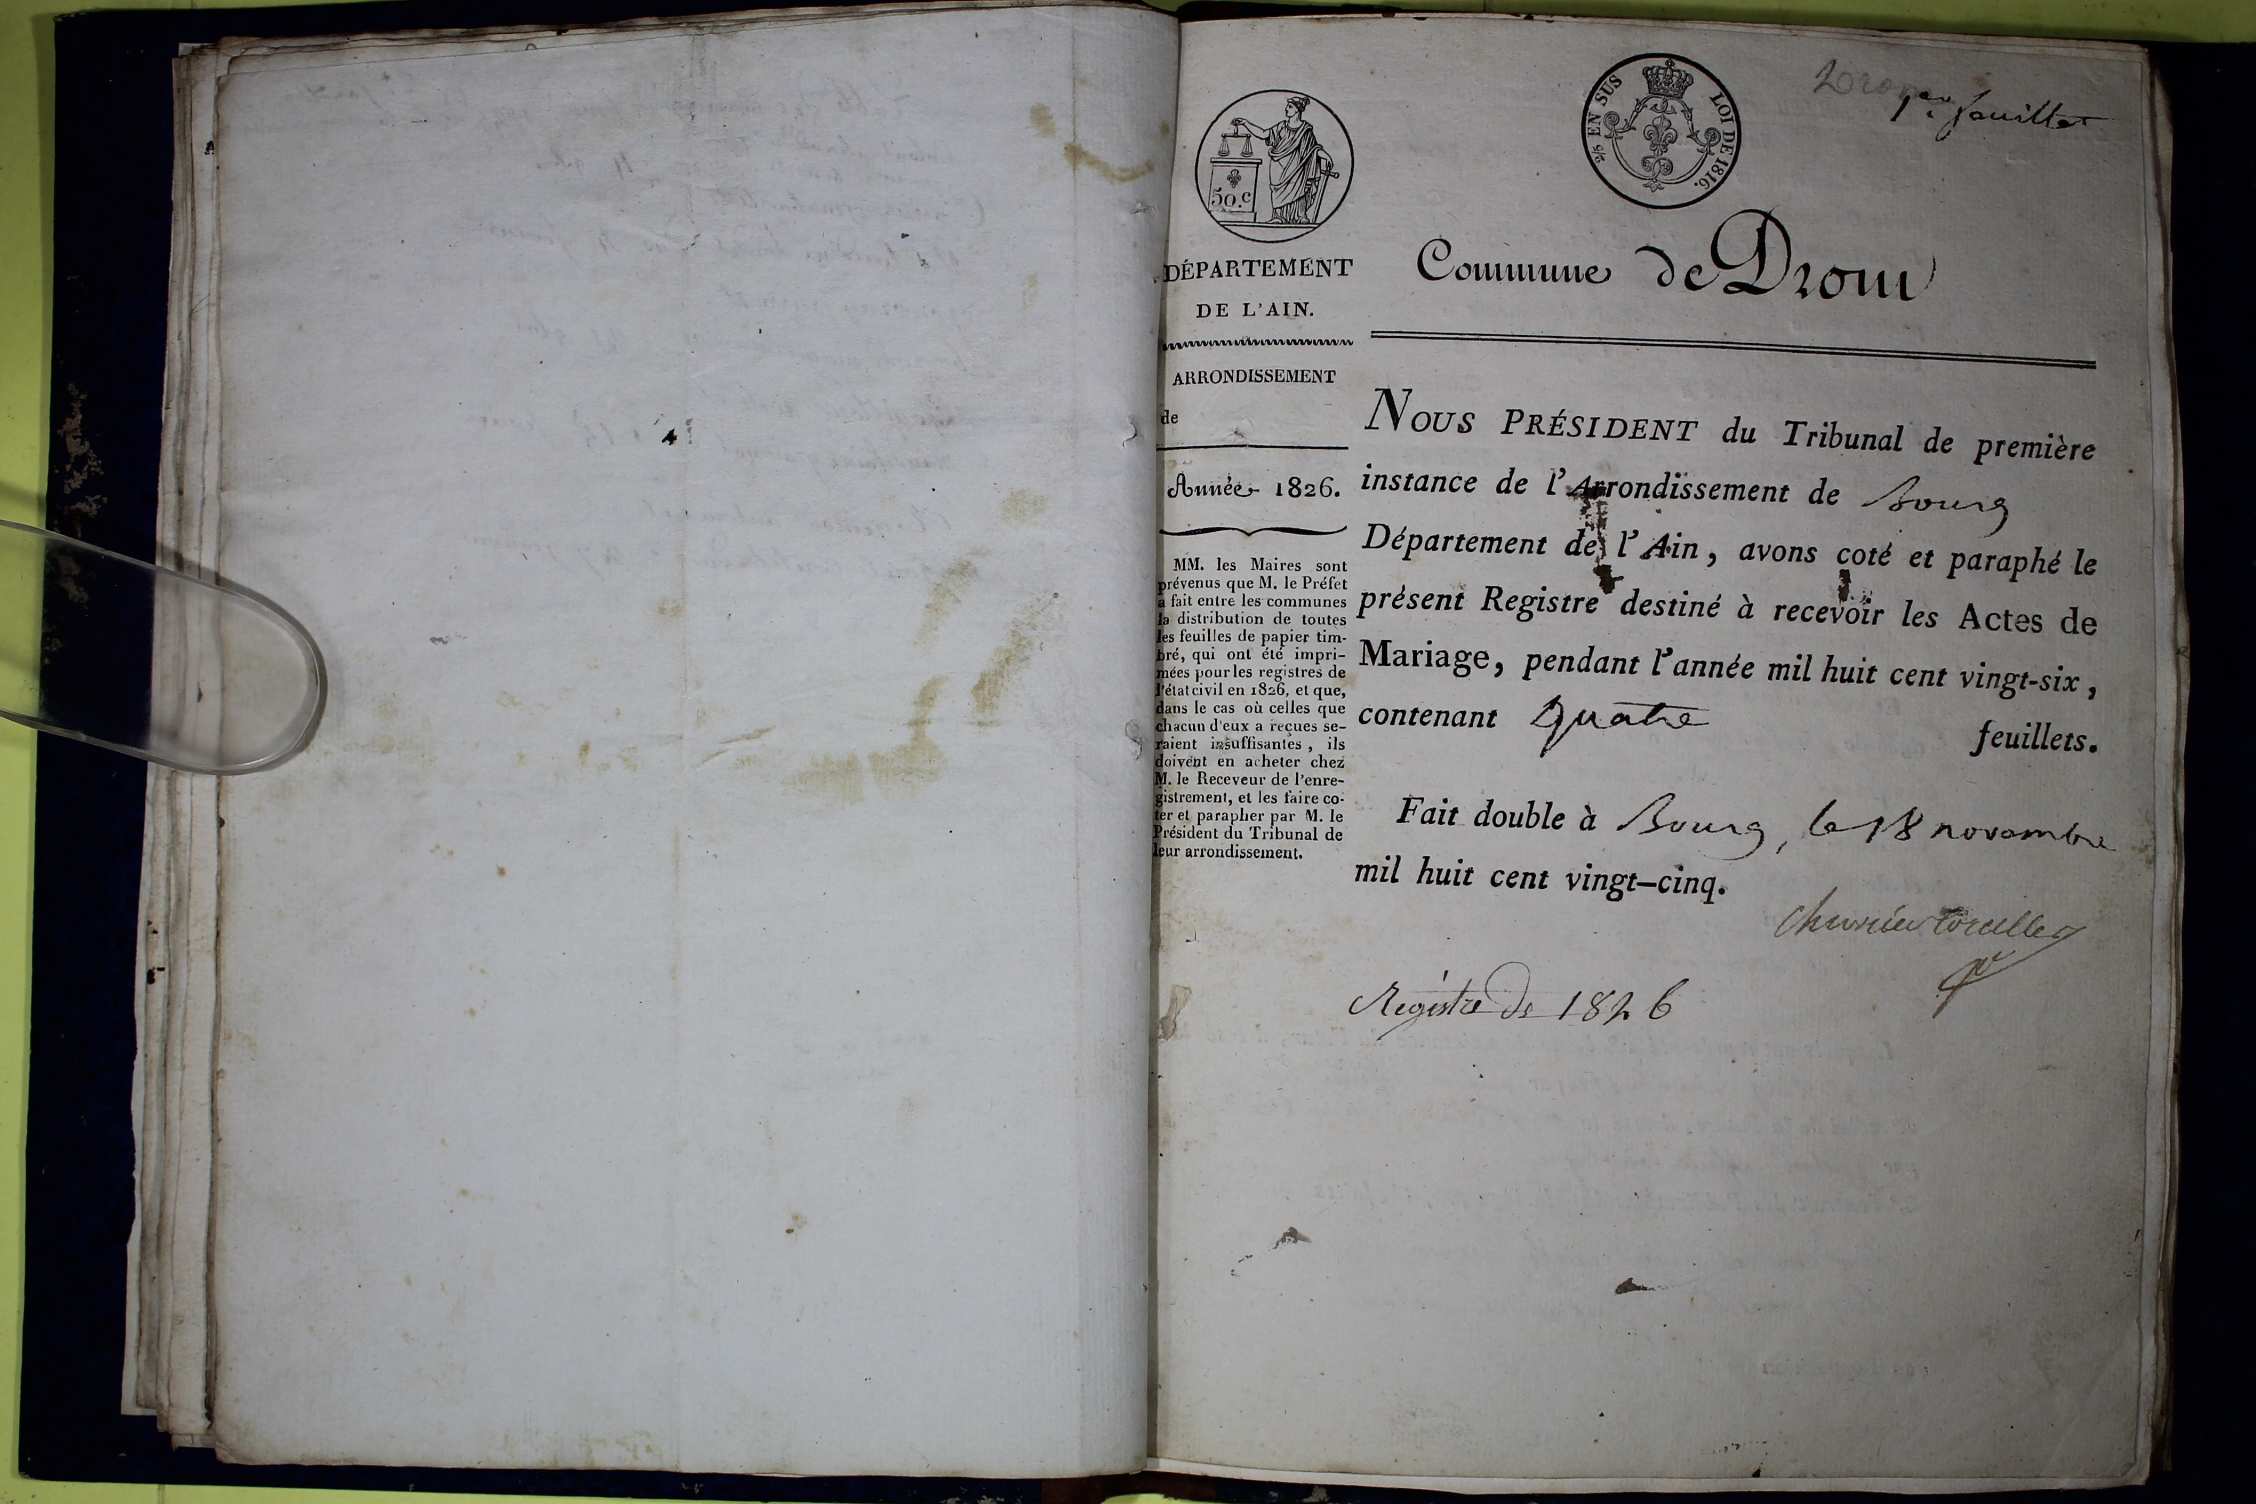 50.c
2/5 EN SUS LOI DE 1816.
Drom
1er feuillet
DÉPARTEMENT
DE L'AIN.
ARRONDISSEMENT
de
Année 1826.
MM. les Maires sont
prévenus que M. le Préfet
a fait entre les communes
la distribution de toutes
les feuilles de papier tim-
bré, qui ont été impri-
mées pour les registres de
l'état civil en 1826, et que,
dans le cas où celles que
chacun d'eux a reçues se-
raient insuffisantes, ils
doivent en acheter chez
M. le Receveur de l'enre-
gistrement, et les faire co-
ter et parapher par M. le
Président du Tribunal de
leur arrondissement.
Commune de Drom
NOUS PRÉSIDENT du Tribunal de première
instance de l'Arrondissement de Bourg
Département de l'Ain, avons coté et paraphé le
présent Registre destiné à recevoir les Actes de
Mariage, pendant l'année mil huit cent vingt-six,
contenant quatre feuillets.
Fait double à Bourg, le 18 novembre
mil huit cent vingt-cinq.
Registre de 1826